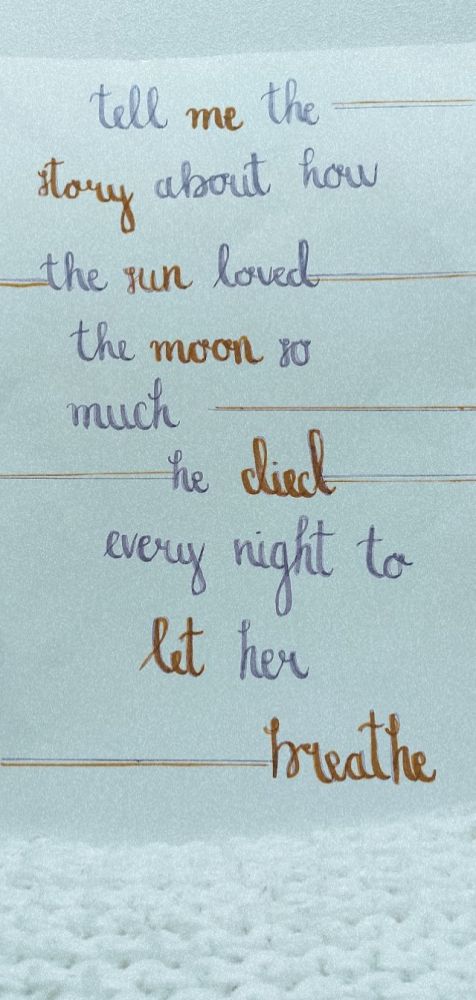 tell me the
story about how
the sun loved
the moon so
much
he died
every night to
let her
breathe